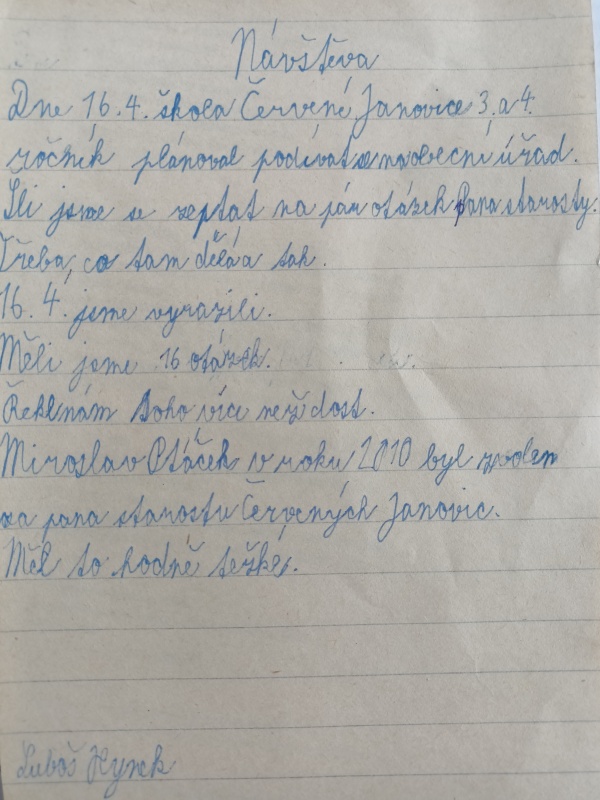 Návštěva
Dne 16.4. škola Červené Janovice 3. a 4.
ročník plánoval podívat se na obecní úřad.
Šli jsme se zeptat na pár otázek pana starosty.
Třeba, co tam dělá a tak.
16.4. jsme vyrazili.
Měli jsme 16 otázek.
Řekl nám toho víc než dost.
Miroslav Ptáček v roku 2010 byl zvolen
za pana starostu Červených Janovic.
Měl to hodně težké.
Luboš Hynek